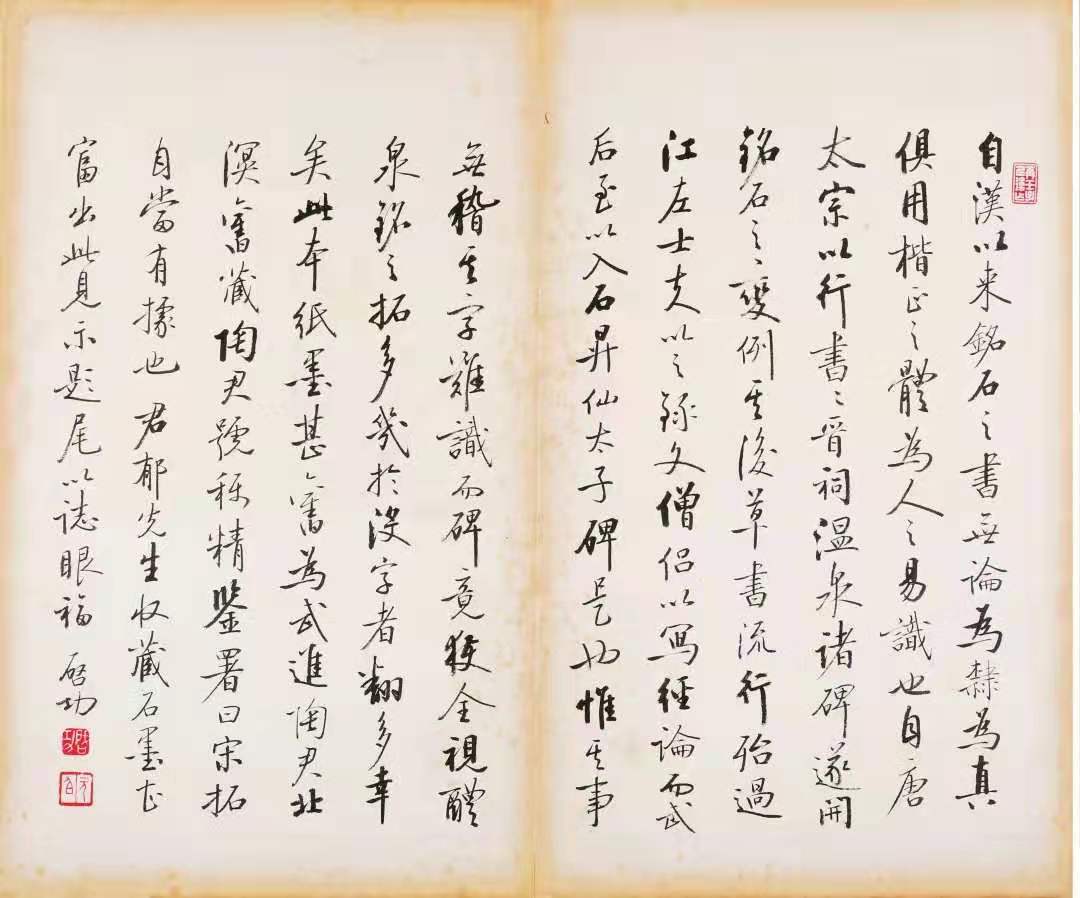 自漢以来銘石之書無論為隸為真
俱用楷正之體為人之易識也自唐
太宗以行書書晋祠温泉諸碑遂開
銘石之之變例其後草書流行殆過
江左士夫以之錄文僧侣以寫經論而武
后至以入石昇仙太子碑是也惟其事
無稽其字難識而碑竟獲全視醴
泉銘之拓多幾於沒字者翻多幸
矣此本紙墨甚舊為武進陶君北
溟舊藏陶君號稱精鑒署曰宋拓
自當有據也君郁先生收藏石墨甚
富出此見示題尾以誌眼福
啓功
啓功
元白